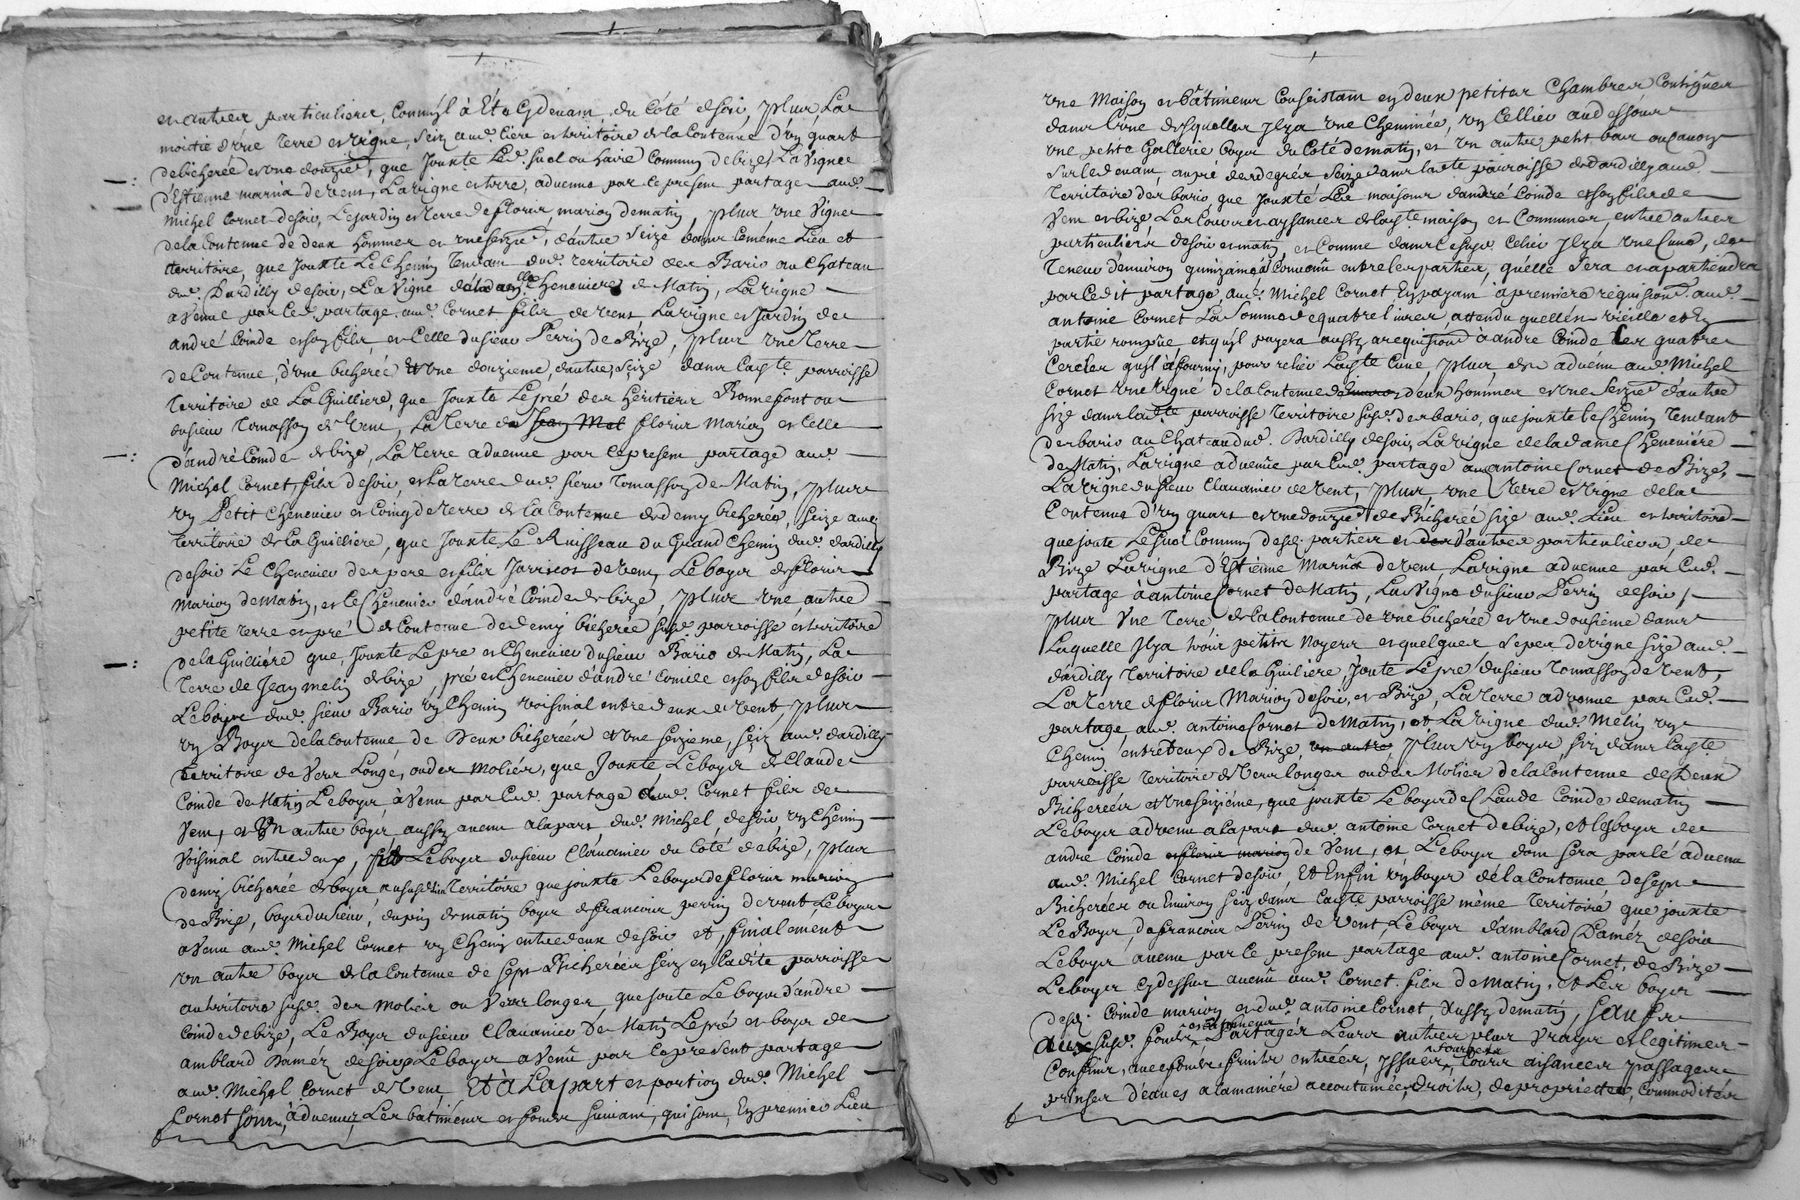 et autres particuliers, comm'il à Eté cy devant, du Côté de soir, plus, La
moitié d'une Terre et Vigne, size aud. lieu et territoire de la Contenue d'un quart
de bicherée et une douzie, que Jouxte Led. suel ou haire Commun de bize, La Vigne
d'Estienne marna de vent, La vigne et terre, advenue par le present partage aud.
Michel Cornet de soir, Le jardin et Terre de florus, marion de matin, plus une Vigne
de la Contenue de deux hommes et une seizie, d'autre Seize dans le méme Lieu et
territoire, que Jouxte Le Chemin Tendant dud. territoire des Bario au Chateau
de Dardilly de soir, La Vigne de la Cheneviere de Matin, La vigne
avenue par led. partage, aud. Cornet fils de vent La vigne et Jardin de
andré Coinde et son fils, et Celle du sieur Perrin de Bize, plus une Terre
de Contenue, d'une bicherée Et Une douzieme, d'autre, seize dans laditte parroisse
Territoire de La Guilliere, que Jouxte Le pré des héritiers Bonnefont ou
du sieur Tomasson de Vent, La Terre de Jean Mel florus Marion et Celle
d'andré Coinde de bize, La Terre advenue par le present partage aud.
Michel Cornet, fils de soir, et La terre dud. sieur Tomasson de Matin, plus
un Petit Chenevier et Coing de Terre de la Contenue de demy bicherée, seize aud.
Territoire de La Guilliere, que Jouxte Le Ruisseau du Grand Chemin dud. dardilly
de soir Le Chenevier des pere et fils Jarricot de vent, Le boyer de florus
Marion de Matin, et le Chenevier d'andré Coinde de bize, plus une autre
petite terre en pré de Contenue de demy bicherée susd. parroisse et territoire
de la Guilliére que, Jouxte Le pre et Chenevier du sieur Bario de Matin, La
Terre de Jean melin de bize, pré et Chenevier d'andré Coinde et son fils de soir
Le boyer dud. sieur Bario un Chemin voisinal entre deux de vent, plus
un Boyer de la Contenue de Deux bicherées et une seizieme, seiz aud. dardilly
Territoire de Vers Longe, ou des Moliér, que Jouxte Le boyer de Claude
Coinde de Matin Le boyer à Venu par led. partage aud. Cornet fils de
Vent, et Un autre boyer aussy avenu a la part dud. Michel de soir, un Chemin
Voisinal entre deux, Le boyer du sieur Clavanier du Coté de bize, plus
demy bicherée de boyer au susd. territoire que jouxte Le boyer de florus marion
de Bize, boyer du sieur, dupin de matin boyer de francois perrin de vent, Le boyer
avenu aud. Michel Cornet un Chemin entre deux de soir et, finalement
un autre boyer de la Contenue de sept Bicherées seiz en Ladite parroisse
au territoire susd. des moliér ou Vers longes, que Joute Le boyer d'andre
Coinde de bize, Le Boyer du sieur Clavanier de Matin Le pré et boyer de
amblard Damez de soir Le boyer a Venu par le present partage
aud. Michel Cornet de Vent, Et à La part et portion dud. Michel
Cornot sont, advenus, Les batiments et fonds suivant, qui sont, En premier Lieu
une Maison et bâtiment Consistant en deux petites Chambres Contigues
dans L'une desquelles Il y a une Cheminée, un Cellier au dessous
une petite Gallerie boyer du Coté de matin, et un autre petit bas ou Cavon
sur le devant, au pié des degrés seize dans laditte parroisse de dardilly aud.
Territoire des bario, que Jouxte Les maisons d'andré Coinde et son fils de
Vent et bize Les Cours et aysances de laditte maison et Communes, entre autres
particuliers de soir et matin, et Comme dans le susd. Celier Il y à une Cuve, de
Teneur d'environ quinzaine à Convenû entre les parties, qu'elle Sera et apartiendra
par le dit partage, aud. Michel Cornet En payant à premiere requision. aud.
antoine Cornet La Somme de quatre livres, attendu quelle est vieille et En
partie rompüe et qu'il payera aussy a requision à andre Coinde Les quatre
Cercles qu'il à fourny, pour relier Laditte Cuve, plus est advenu aud. Michel
Cornot une Vigne de la Contenue de deux hommes et une seizie d'autre
size dans la de parroisse Territoire susd. des bario, que jouxte le Chemin Tendant
des bario au Chateau dud. Dardilly de soir, La vigne de la dame Cheneviére
de Matin, La vigne advenüe par led. partage au antoine Cornet de Bize,
La Vigne du sieur Clavanier de vent, plus une Terre et Vigne de la
Contenue d'un quart et une douzie de Bicherée size aud. Lieu et territoire
que joute Le suel Commun desd. parties et d'autres particuliers, de
Bize La vigne d'Estienne Marnâ de vent La vigne advenue par led.
partage à antoine Cornet de Matin, La Vigne du sieur Perrin de soir,
plus Une Terre de la Contenue de une bicherée et une dousieme dans
Laquelle Il y a trois petits Noyers et quelques Seps de vigne size aud.
dardilly Territoire de la Guiliére, Joute Le pré du sieur Tomasson de vent,
La Terre de florus Marion, de soir, et Bize, La Terre advenue par led.
partage aud. antoine Cornet de Matin, et La Vigne dud. Mélin un
Chemin entre deux de Bize, un autre, plus un boyer, siz dans laditte
parroisse Territoire de Vers longes ou des Molier de la Contenue de Deux
Bicherées et une seizieme, que jouxte Le boyer de Claude Coinde de matin
Le boyer advenu a La part dud. antoine Cornet de bize, et le boyer de
andre Coinde et florus marion de Vent, et Le boyer dont sera parlé advenu
aud. Michel Cornet de soir, Et Enfin un boyer de la Contenue de sept
Bicherées ou Environ seiz dans laditte parroisse même Territoire que jouxte
Le Boyer, de francois Perrin de Vent, Le boyer d'amblard Damez de soir
Le boyer avenu par le present partage aud. antoine Cornet, de Bize
Le boyer cy dessus avenû aud. Cornet. fils de matin, Et Les boyer
desd. Coinde marion et dud. antoine Cornot, Aussy de matin, sauf
aux susd. fonds Partagés Leurs autres plus Vrayes et legitimes
Confins, avec fonds fruits entrées, Issues, Cours aisances passages
prinses d'éaües a la maniére accoutumée, Droits, de proprietter, Commodités